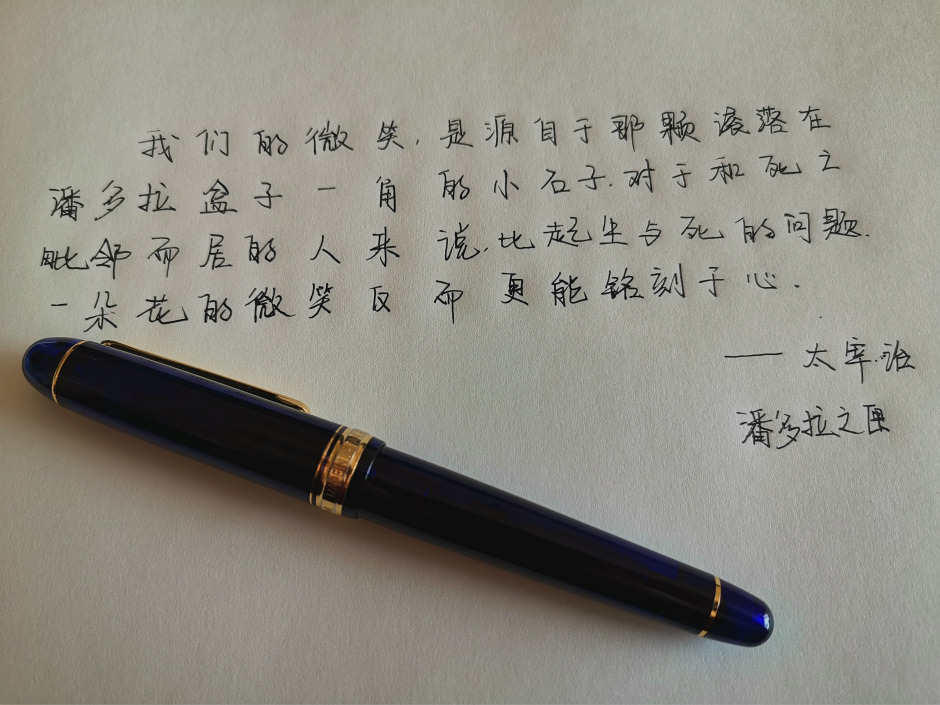 我们的微笑,是源自于那颗滚落在
潘多拉盒子一角的小石子.对于和死之
毗邻而居的人来说.比起生与死的问题.
一朵花的微笑反而更能铭刻于心.
—— 太宰治
潘多拉之匣